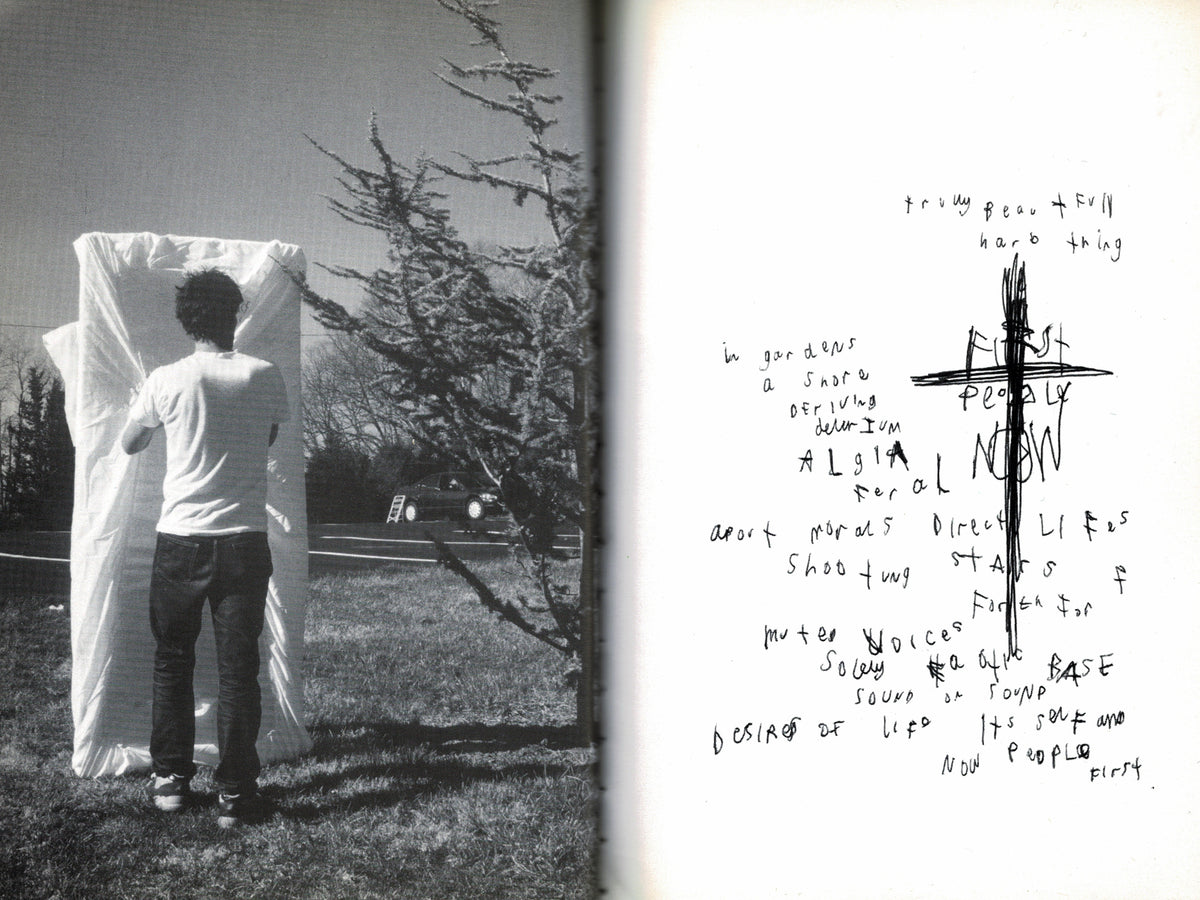 truuy BeautFull
harb thing
in gardens
a Shore
DERIVING
delerIum
FIRST
PEOPLE
NOW
ALgIA
feral
apart morals Direct LIFes
Shootung stArs F
Forth For
muted Voices
Solely BASE
SOUND on SOUND
DESIRES OF life Its self and
NOW PEOPLe
FIrst.